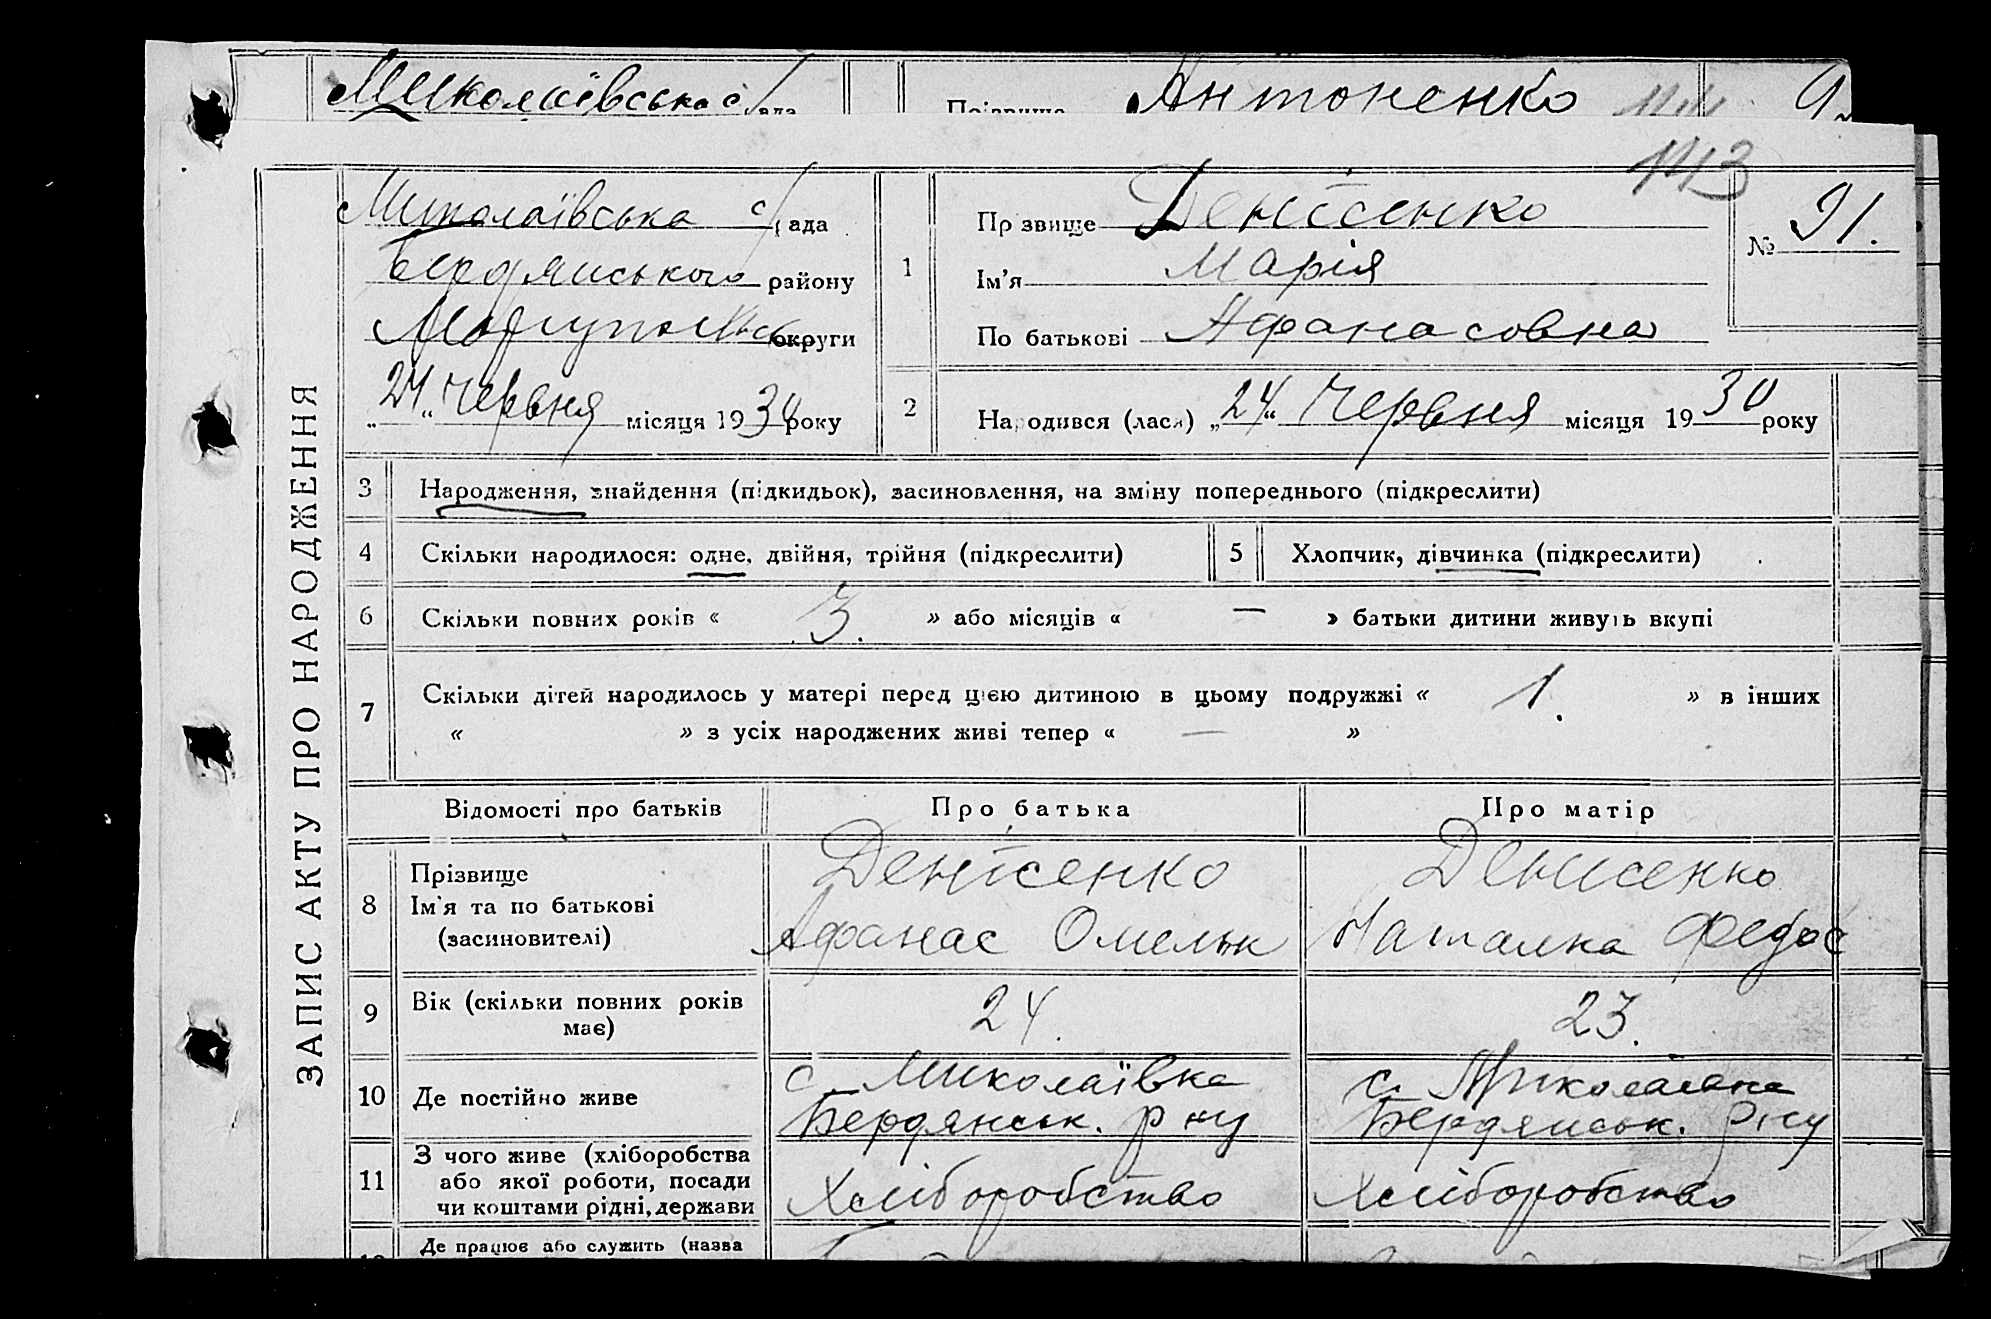 Миколаївська с/рада
Прізвище Антоненко
113
Миколаївська с/рада
Бердянського району
Маріупольськ округи
24 „ Червня місяця 1930 року
ЗАПИС АКТУ ПРО НАРОДЖЕННЯ
1
Прізвище Денісенко
Ім'я Марія
По батькові Афанасовна
№ 91.
2 Народився (лася) „24“ Червня місяця 1930 року
3 Народження, знайдення (підкидьок), засиновлення, на зміну попереднього (підкреслити)
4 Скільки народилося: одне, двійня, трійня (підкреслити) 5 Хлопчик, дівчинка (підкреслити)
6 Скільки повних років « 3. » або місяців « — » батьки дитини живуть вкупі
7 Скільки дітей народилось у матері перед цією дитиною в цьому подружжі « 1. » в інших
« » з усіх народжених живі тепер « — »
Відомості про батьків Про батька Про матір
8 Прізвище
Ім'я та по батькові
(засиновителі)
Денісенко
Афанас Омельк
Денисенко
Наталка Федос
9 Вік (скільки повних років
має)
24
23.
10 Де постійно живе
с. Миколаївка
Бердянськ. р ну
с. Миколаївка
Бердянськ. р ну
11 З чого живе (хліборобства
або якої роботи, посади
чи коштами рідні, держави
Хліборобство
Хліборобство
Де працює або служить (назва